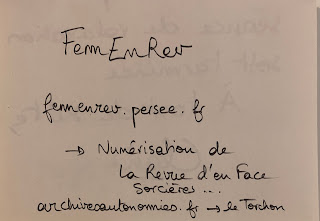 FemEnRev
femenrev.persee.fr
→ Numérisation de
La Revue d'en Face
Sorcières...
archivesautonomies.fr → le Torchon